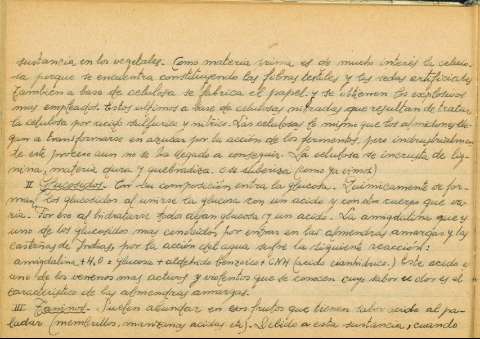 sustancia en los vegetales. Como materia prima es de mucho interés la celulo-
sa porque se encuentra constituyendo las fibras textiles y las sedas artificiales
también a base de celulosa se fabrica el papel y se obtienen los explosivos
mas empleados. Estos ultimos a base de celulosas nitradas que resultan de tratar
la celulosa por acido sulfurico y nitrico. Las celulosas lo mismo que los almidones lle-
gan a transformarse en azucar por la acción de los fermentos, pero industrialmen-
te este proceso aun no se ha llegado a conseguir. La celulosa se incrusta de lig-
nina, materia dura y quebradiza o de suberina (como ya vimos)
II Glucosidos. En su composición entra la glucosa. Quimicamente se for-
man los glucosidos al unirse la glucosa con un acido y con otro cuerpo que va-
ria. Por eso al hidratarse todos dejan glucosa y un acido. La amigdalina que es
uno de los glucosidos mas conocidos por entrar en las almendras amargas y las
castañas de Indias, por la acción del agua sufre la siguiente reacción:
amigdalina + H2O = glucosa + aldehido benzoico + CNH (acido cianhidrico.) Este acido es
uno de los venenos mas activos y violentos que se conocen cuyo sabor u olor es el
caracteristico de las almendras amargas.
III Taninos. Suelen abundar en esos frutos que tienen sabor acido al pa-
ladar (membrillos, manzanas acidas etc). Debido a esta sustancia, cuando